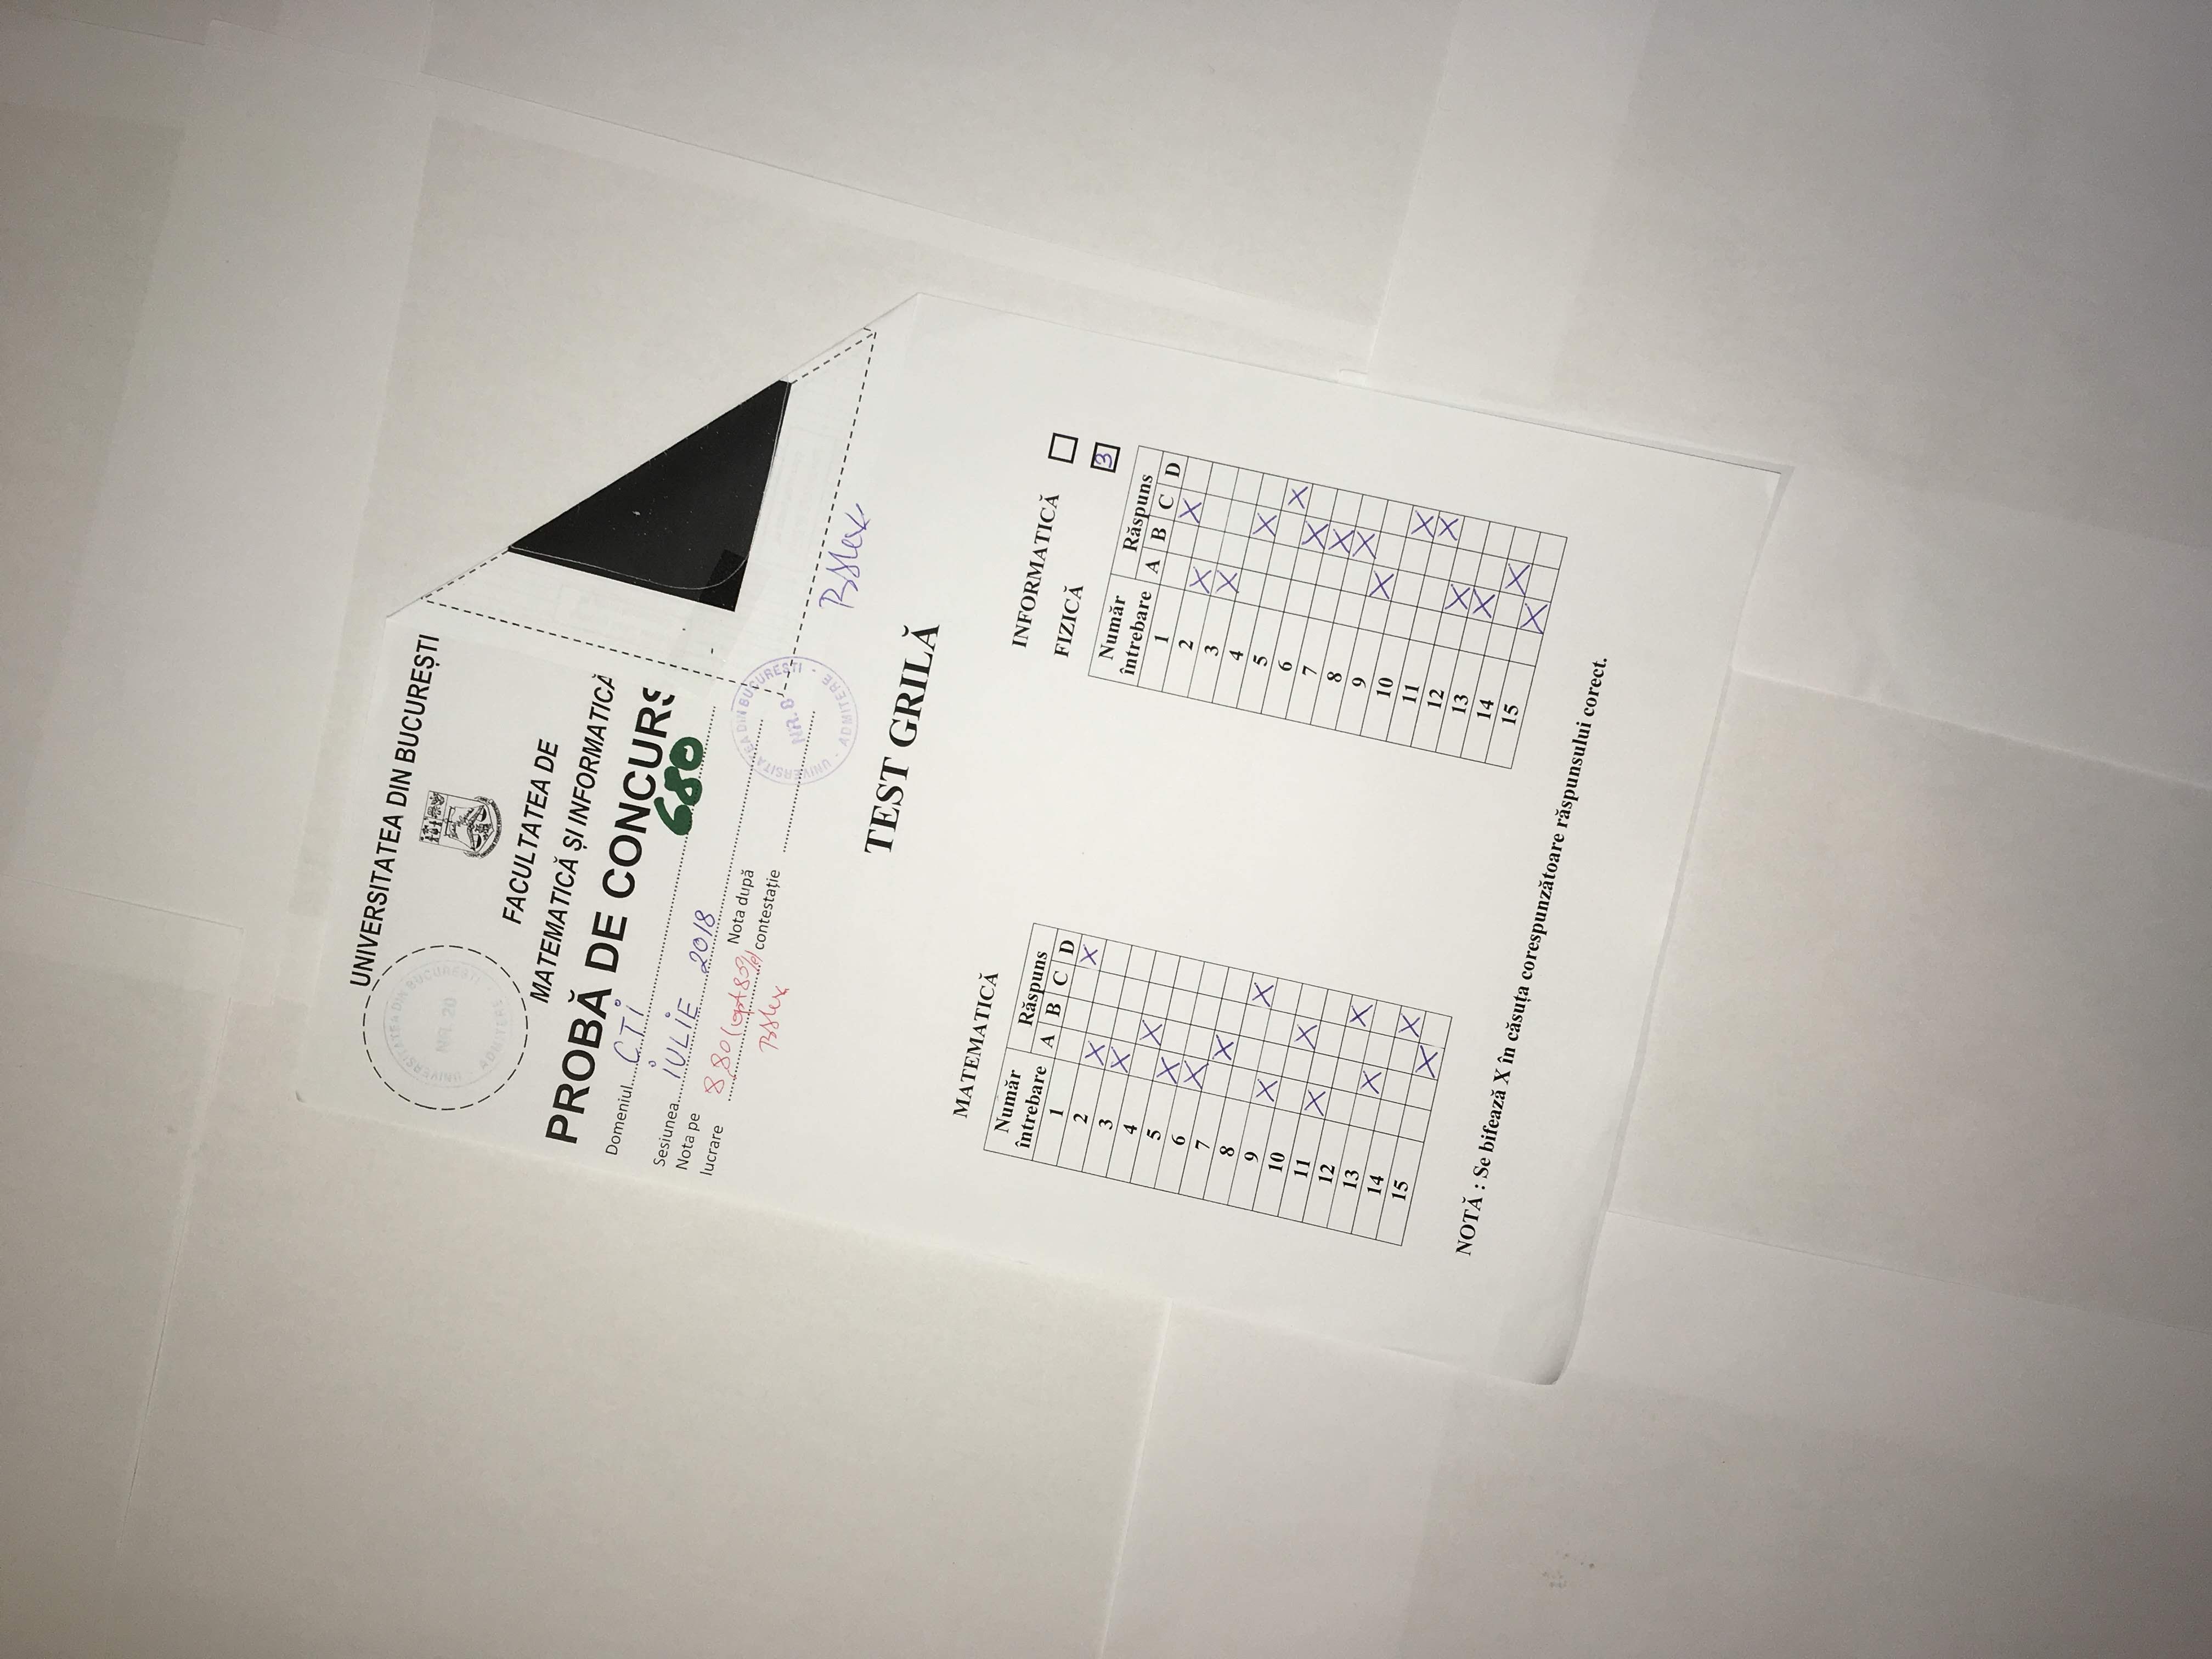 UNIVERSITATEA DIN BUCUREȘTI
UNIVERSITATEA DIN BUCUREȘTI
NR. 20
ADMITERE
FACULTATEA DE
MATEMATICĂ ȘI INFORMATICĂ
PROBĂ DE CONCURS
Domeniul.....CTI
680
Sesiunea....IULIE 2018
Nota pe
lucrare 8,80 (opt 80%) Nota după
contestație
UNIVERSITATEA DIN BUCUREȘTI
NR. 8
ADMITERE
TEST GRILĂ
MATEMATICĂ
Număr
întrebare Răspuns
A B C D
1 X
2 X
3 X
4 X
5 X
6 X
7 X
8 X
9 X
10 X
11 X
12 X
13 X
14 X
15 X
INFORMATICĂ
FIZICĂ 3
Număr
întrebare Răspuns
A B C D
1 X
2 X
3 X
4 X
5 X
6 X
7 X
8 X
9 X
10 X
11 X
12 X
13 X
14 X
15 X
NOTĂ : Se bifează X în căsuța corespunzătoare răspunsului corect.